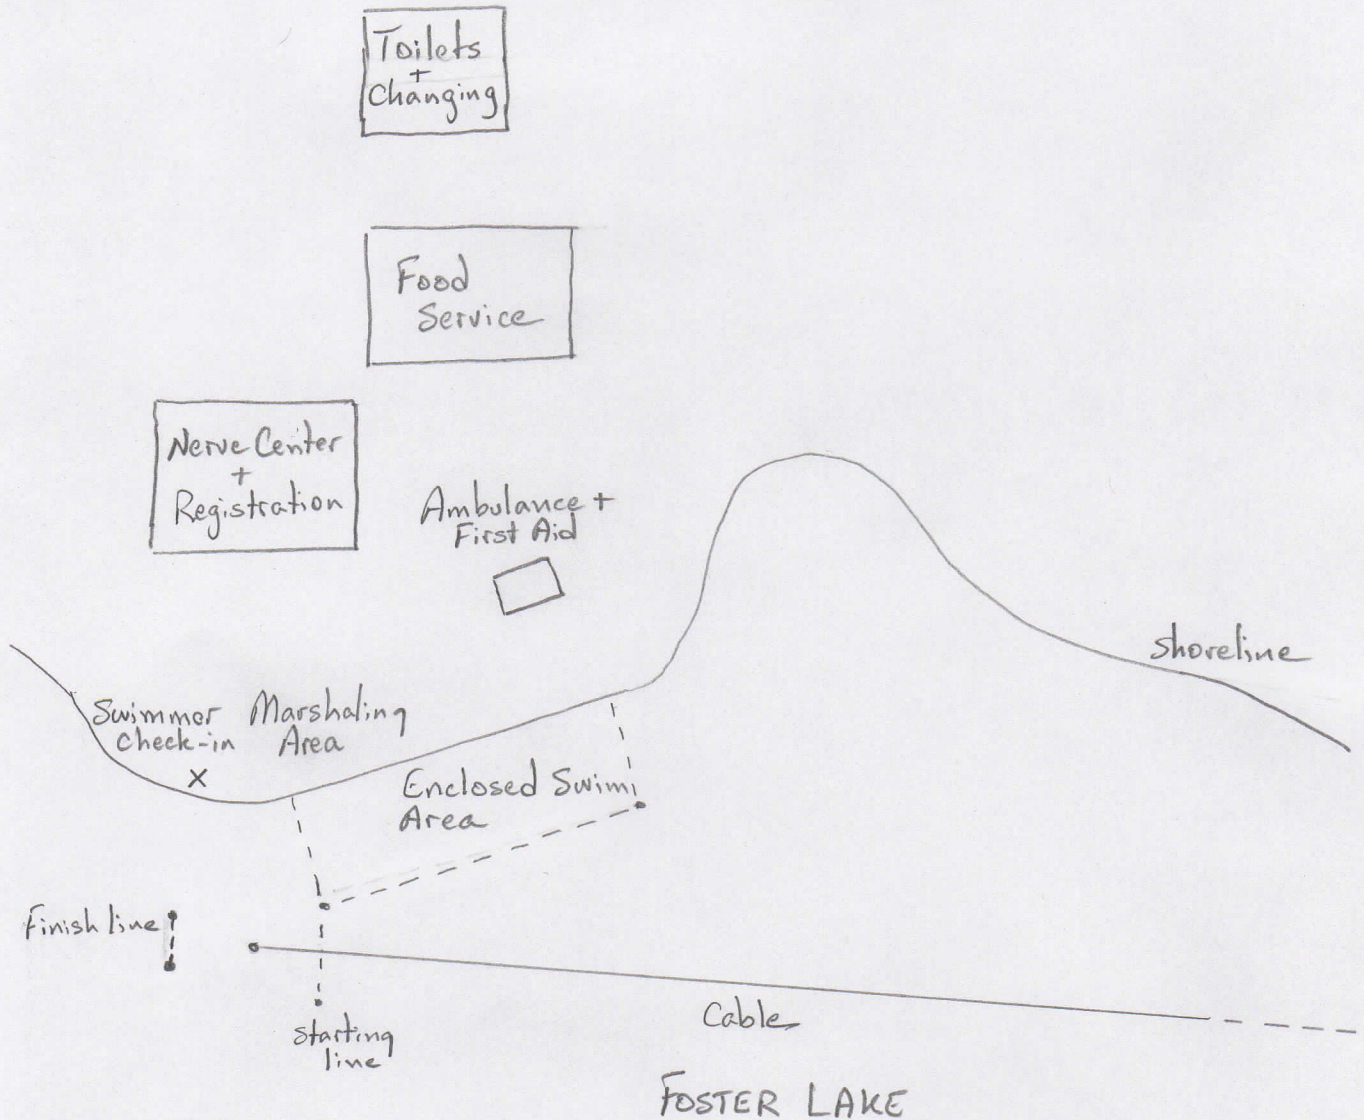 Toilets
+
Changing
Food
Service
Nerve Center
+
Registration
Ambulance +
First Aid
Shoreline
Swimmer
Check-in
X
Marshaling
Area
Enclosed Swim
Area
Finish line
Starting
line
Cable
FOSTER LAKE